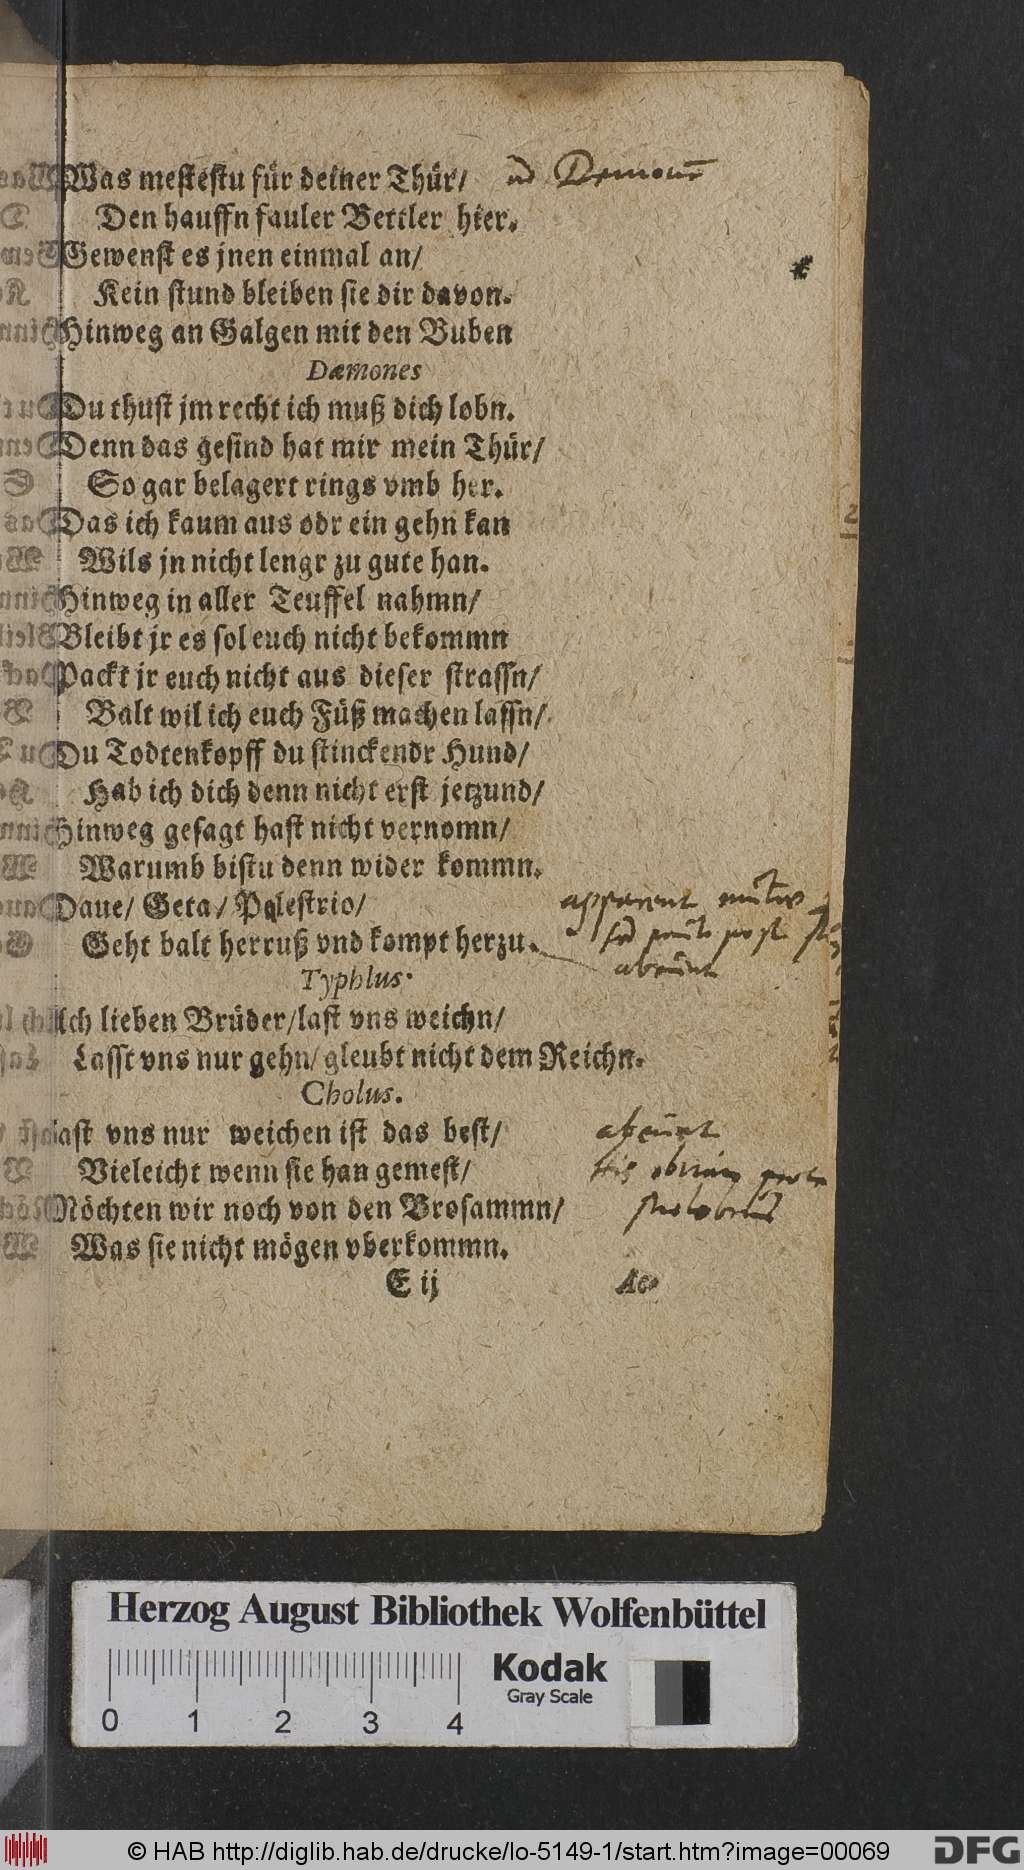 Was mestestu für deiner Thür/ ad Demonē
Den hauffn fauler Bettler hier.
Gewenst es jnen einmal an/
Kein stund bleiben sie dir davon.
Hinweg an Galgen mit den Buben
Dæmones
Du thust jm recht ich muß dich lobn.
Denn das gesind hat mir mein Thür/
So gar belagert rings vmb her.
Das ich kaum aus odr ein gehn kan
Wils jn nicht lengr zu gute han.
Hinweg in aller Teuffel nahmn/
Bleibt jr es sol euch nicht bekommn
Packt jr euch nicht aus dieser strassn/
Balt wil ich euch Füß machen lassn/
Du Todtenkopff du stinckendr Hund/
Hab ich dich denn nicht erst jetzund/
Hinweg gesagt hast nicht vernomn/
Warumb bistu denn wider kommn.
Daue/ Geta/ Palestrio/ apparent
Geht balt herruß vnd kompt herzu. sed post
abeunt
Typhlus.
Ich lieben Brüder/last vns weichn/
Lasst vns nur gehn/gleubt nicht dem Reichn.
Cholus.
last vns nur weichen ist das best/ abeunt
Vieleicht wenn sie han gemest/ His
Möchten wir noch von den Brosammn/
Was sie nicht mögen vberkommn.
E ij Ac-
Herzog August Bibliothek Wolfenbüttel
Kodak
Gray Scale
0 1 2 3 4
© HAB http://diglib.hab.de/drucke/lo-5149-1/start.htm?image=00069 DFG